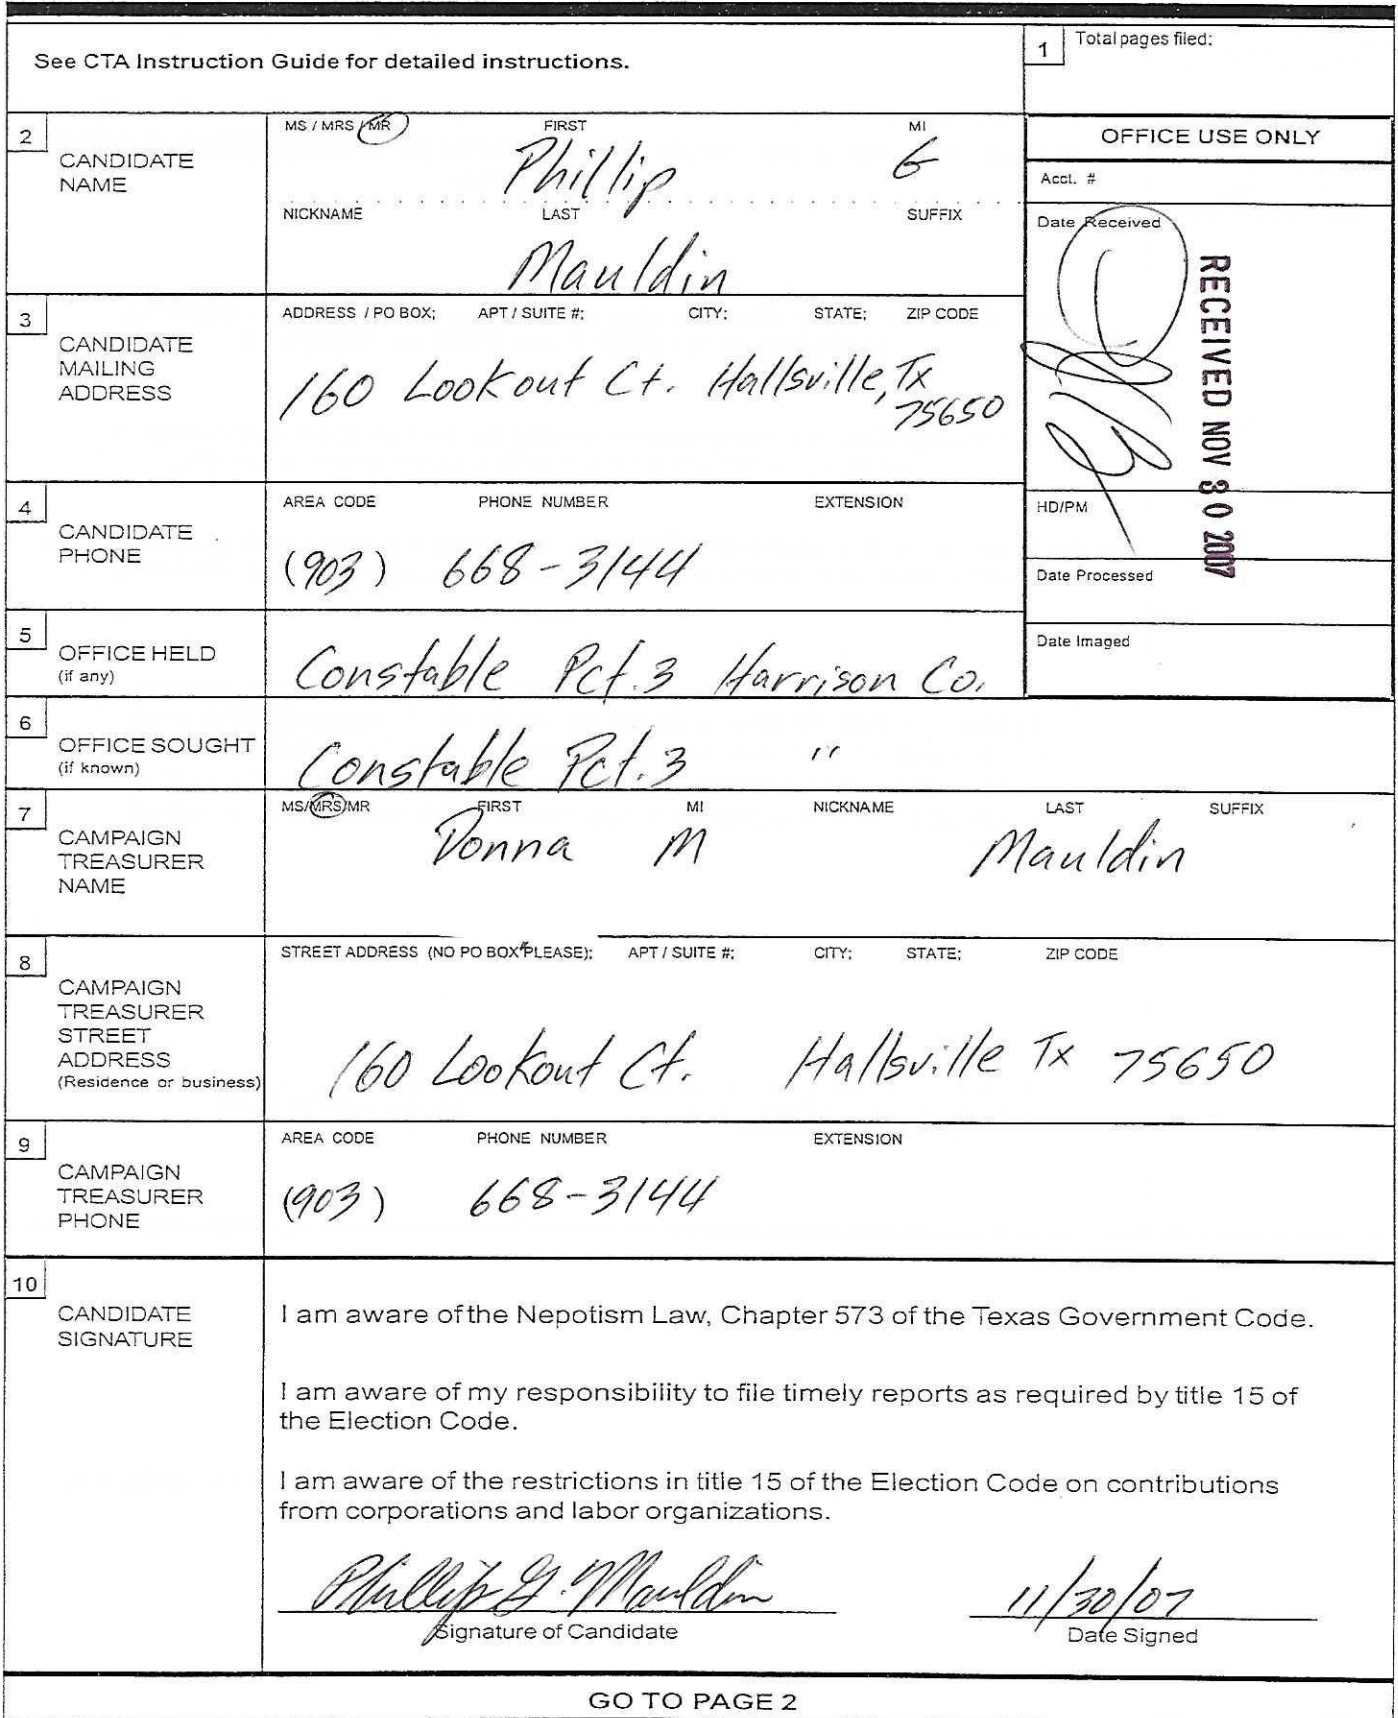 See CTA Instruction Guide for detailed instructions.
1 Total pages filed:
2 CANDIDATE NAME
MS / MRS / MR FIRST MI
Phillip G
NICKNAME LAST SUFFIX
Mauldin
OFFICE USE ONLY
Acct. #
Date Received
RECEIVED NOV 30 2007
HD/PM
Date Processed
Date Imaged
3 CANDIDATE MAILING ADDRESS
ADDRESS / PO BOX; APT / SUITE #; CITY; STATE; ZIP CODE
160 Lookout Ct. Hallsville, Tx
75650
4 CANDIDATE PHONE
AREA CODE PHONE NUMBER EXTENSION
(903) 668-3144
5 OFFICE HELD
(if any)
Constable Pct. 3 Harrison Co.
6 OFFICE SOUGHT
(if known)
Constable Pct. 3 "
7 CAMPAIGN TREASURER NAME
MS/MRS/MR FIRST MI NICKNAME LAST SUFFIX
Donna M Mauldin
8 CAMPAIGN TREASURER STREET ADDRESS
(Residence or business)
STREET ADDRESS (NO PO BOX PLEASE); APT / SUITE #; CITY; STATE; ZIP CODE
160 Lookout Ct. Hallsville Tx 75650
9 CAMPAIGN TREASURER PHONE
AREA CODE PHONE NUMBER EXTENSION
(903) 668-3144
10 CANDIDATE SIGNATURE
I am aware of the Nepotism Law, Chapter 573 of the Texas Government Code.
I am aware of my responsibility to file timely reports as required by title 15 of
the Election Code.
I am aware of the restrictions in title 15 of the Election Code on contributions
from corporations and labor organizations.
Phillip G. Mauldin 11/30/07
Signature of Candidate Date Signed
GO TO PAGE 2